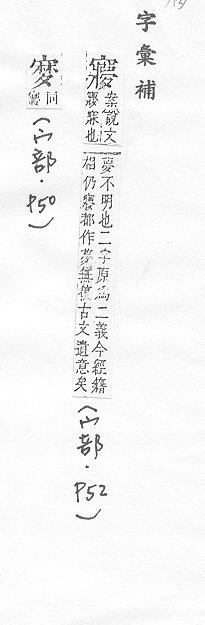 字彙補
㝱
案說文
㝱寐也
夢不明也二字原為二義今經籍
相仍㝱都作夢無復古文遺意矣
(宀部.P52)
同
㝱
(宀部.P50)